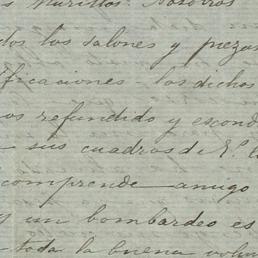 Murillos. Nosotros
los salones y piezas
ficaciones - los dichos
os refundido y escond
sus cuadros de
comprende amigo
y un bombardeo es
toda la buena volun